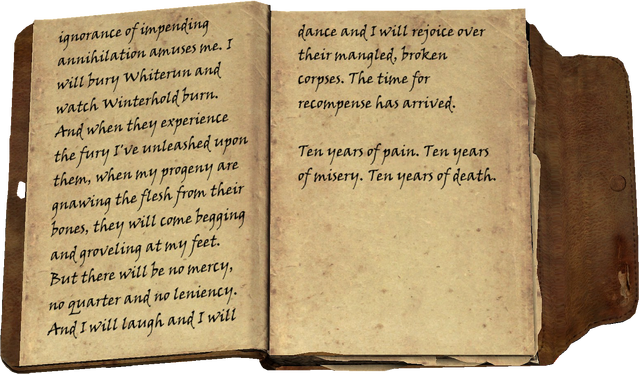 ignorance of impending
annihilation amuses me. I
will bury Whiterun and
watch Winterhold burn.
And when they experience
the fury I've unleashed upon
them, when my progeny are
gnawing the flesh from their
bones, they will come begging
and groveling at my feet.
But there will be no mercy,
no quarter and no leniency.
And I will laugh and I will
dance and I will rejoice over
their mangled, broken
corpses. The time for
recompense has arrived.
Ten years of pain. Ten years
of misery. Ten years of death.